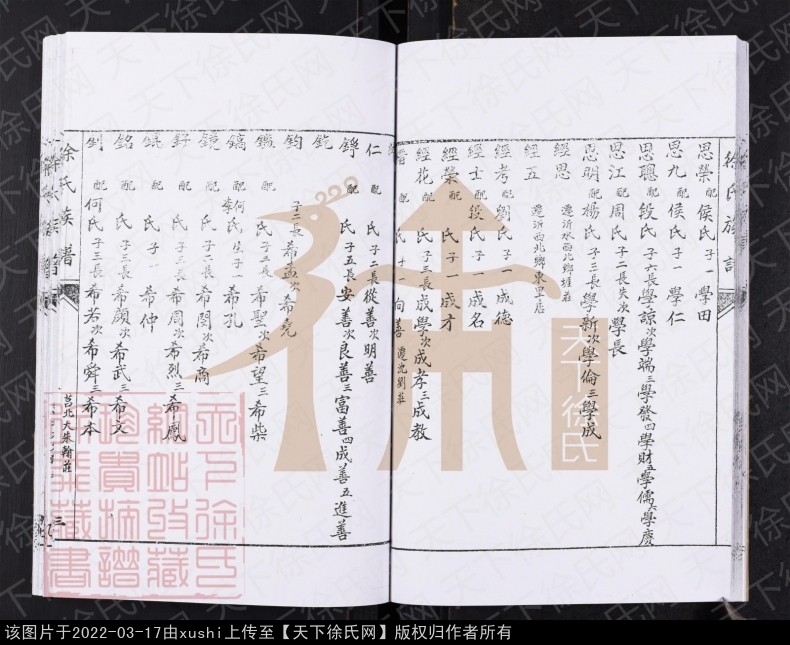 徐氏族譜
思榮 配侯氏 子一 學田
思九 配侯氏 子一 學仁
思聰 配段氏 子六 長學諒 次學端 三學發 四學財 五學儒 六學慶
思江 配周氏 子二 長失 次學長
思明 配楊氏 子三 長學新 次學倫 三學成
經恩 遷沂水西北鄉埠莊
經五 遷沂西北鄉東里店
經考 配劉氏 子一 成德
經士 配段氏 子一 成名
經榮 配 氏 子一 成才
經花 配 氏 子三 長成學 次成孝 三成教
配 氏 子一 向善 遷沈劉莊
仁 配 氏 子二 長從善 次明善
錚 配 氏 子五 長安善 次良善 三富善 四成善 五進善
鈞 子二 長希孟 次希堯
配 氏 子三 長希聖 次希望 三希柴
鎬 配何氏 李氏 生子一 希孔
鏡 配 氏 子二 長希閔 次希商
配 氏 子三 長希周 次希烈 三希鳳
配 氏 子一 希仲
銘 配 氏 子三 長希顏 次希武 三希文
釗 配何氏 子三 長希若 次希舜 三希本
徐氏族譜
三
莒北大朱翰莊
天下徐氏
天下徐氏網
该图片于2022-03-17由xushi上传至【天下徐氏网】版权归作者所有